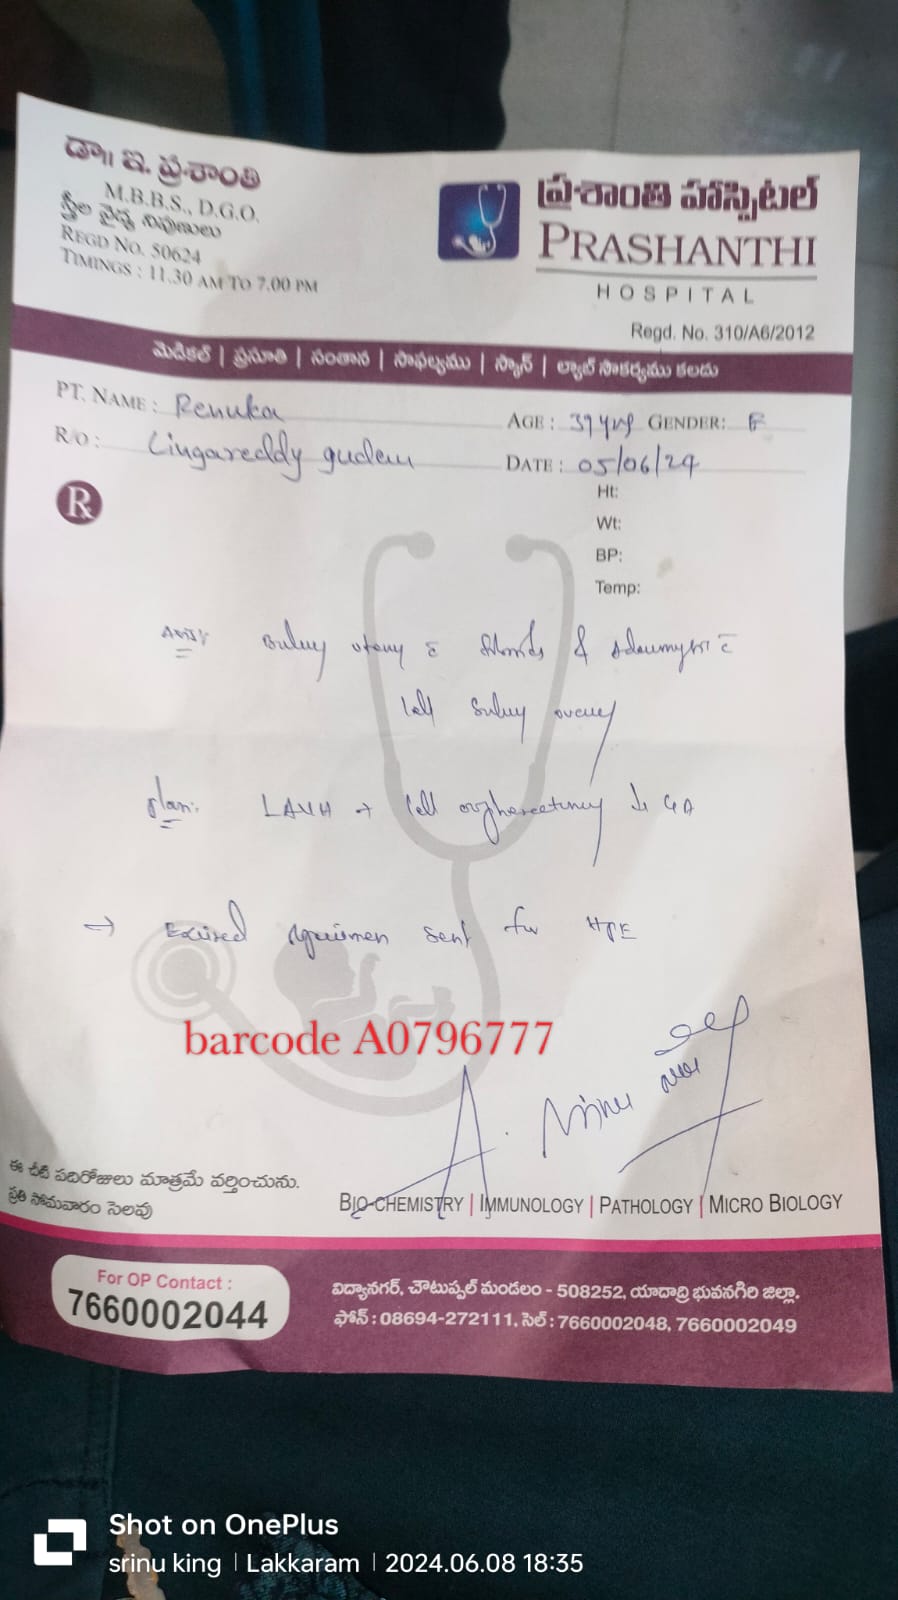 డా॥ ఇ. ప్రశాంతి
M.B.B.S., D.G.O.
స్త్రీల వైద్య నిపుణులు
REGD NO. 50624
TIMINGS : 11.30 AM TO 7.00 PM
ప్రశాంతి హాస్పిటల్
PRASHANTHI
HOSPITAL
Regd. No. 310/A6/2012
మెడికల్ | ప్రసూతి | సంతాన | సాఫల్యము | స్కాన్ | ల్యాబ్ సౌకర్యము కలదు
PT. NAME : Renuka
AGE : 39 yrs GENDER: F
R/O : Lingareddy gudem
DATE : 05/06/24
Rx
Ht:
Wt:
BP:
Temp:
Bulky &
Bulky
Plan: LAVH + GA
→ Excised specimen sent for HPE
barcode A0796777
ఈ చీటి పదిరోజులు మాత్రమే వర్తించును.
ప్రతి సోమవారం సెలవు
BIO-CHEMISTRY | IMMUNOLOGY | PATHOLOGY | MICRO BIOLOGY
For OP Contact :
7660002044
విద్యానగర్, చౌటుప్పల్ మండలం - 508252, యాదాద్రి భువనగిరి జిల్లా.
ఫోన్ : 08694-272111, సెల్ : 7660002048, 7660002049
Shot on OnePlus
srinu king | Lakkaram | 2024.06.08 18:35